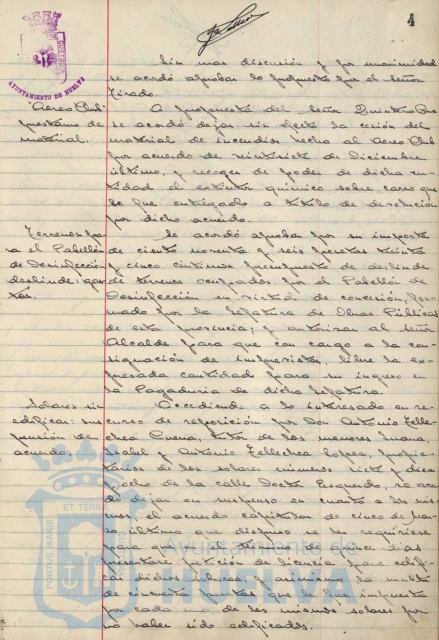 4
AYUNTAMIENTO DE HUELVA
CUSTODIA
Sin mas discusión y por unanimidad
se acordó aprobar lo propuesto por el señor
Tirado.
"Aereo Club"
prestamo de
material.
A propuesta del Señor Quintero
se acordó dejar sin efecto la cesión del
material de incendios hecha al Aereo Club
por acuerdo de veintisiete de Diciembre
último, y recoger de poder de dicha en-
tidad el extintor químico sobre carro que
le fue entregado a título de devolución
por dicho acuerdo.
Terrenos pa-
ra el Pabellón
de Desinfección
deslinde:
Se acordó aprobar por su importe
de ciento noventa y seis pesetas treinta
y cinco céntimos presupuesto de deslinde
de terreno ocupados por el Pabellón de
Desinfección en virtud de concesión, for-
mado por la Jefatura de Obras Públicas
de esta provincia; y autorizar al señor
Alcalde para que con cargo a la con-
signación de imprevistos, libre la ex-
presada cantidad para su ingreso en
la Pagaduría de dicha Jefatura.
Solares sin
edificar: sus
pensión de
acuerdo.
Accediendo a lo interesado en re-
curso de reposición por Don Antonio Telle-
chea tutor de los menores Juana,
Isabel y Antonio Tellechea Lopez, propie-
tarios de los solares números siete y diez
y ocho de la calle Doctor Esquerdo, se acor-
dó dejar en suspenso en cuanto a los mis-
mos, el acuerdo capitular de cinco de Mar-
zo último que dispuso se les requiriese
para que en el término de quince dias
presentare petición de licencia para edifi-
car dichos solares y asimismo la multa
de cincuenta pesetas que le fue impuesta
por cada uno de los mismos solares por
no haber sido edificados.
PORTUS MARIS ET TERRAE CUSTODIA
Ayuntamiento de
HUELVA